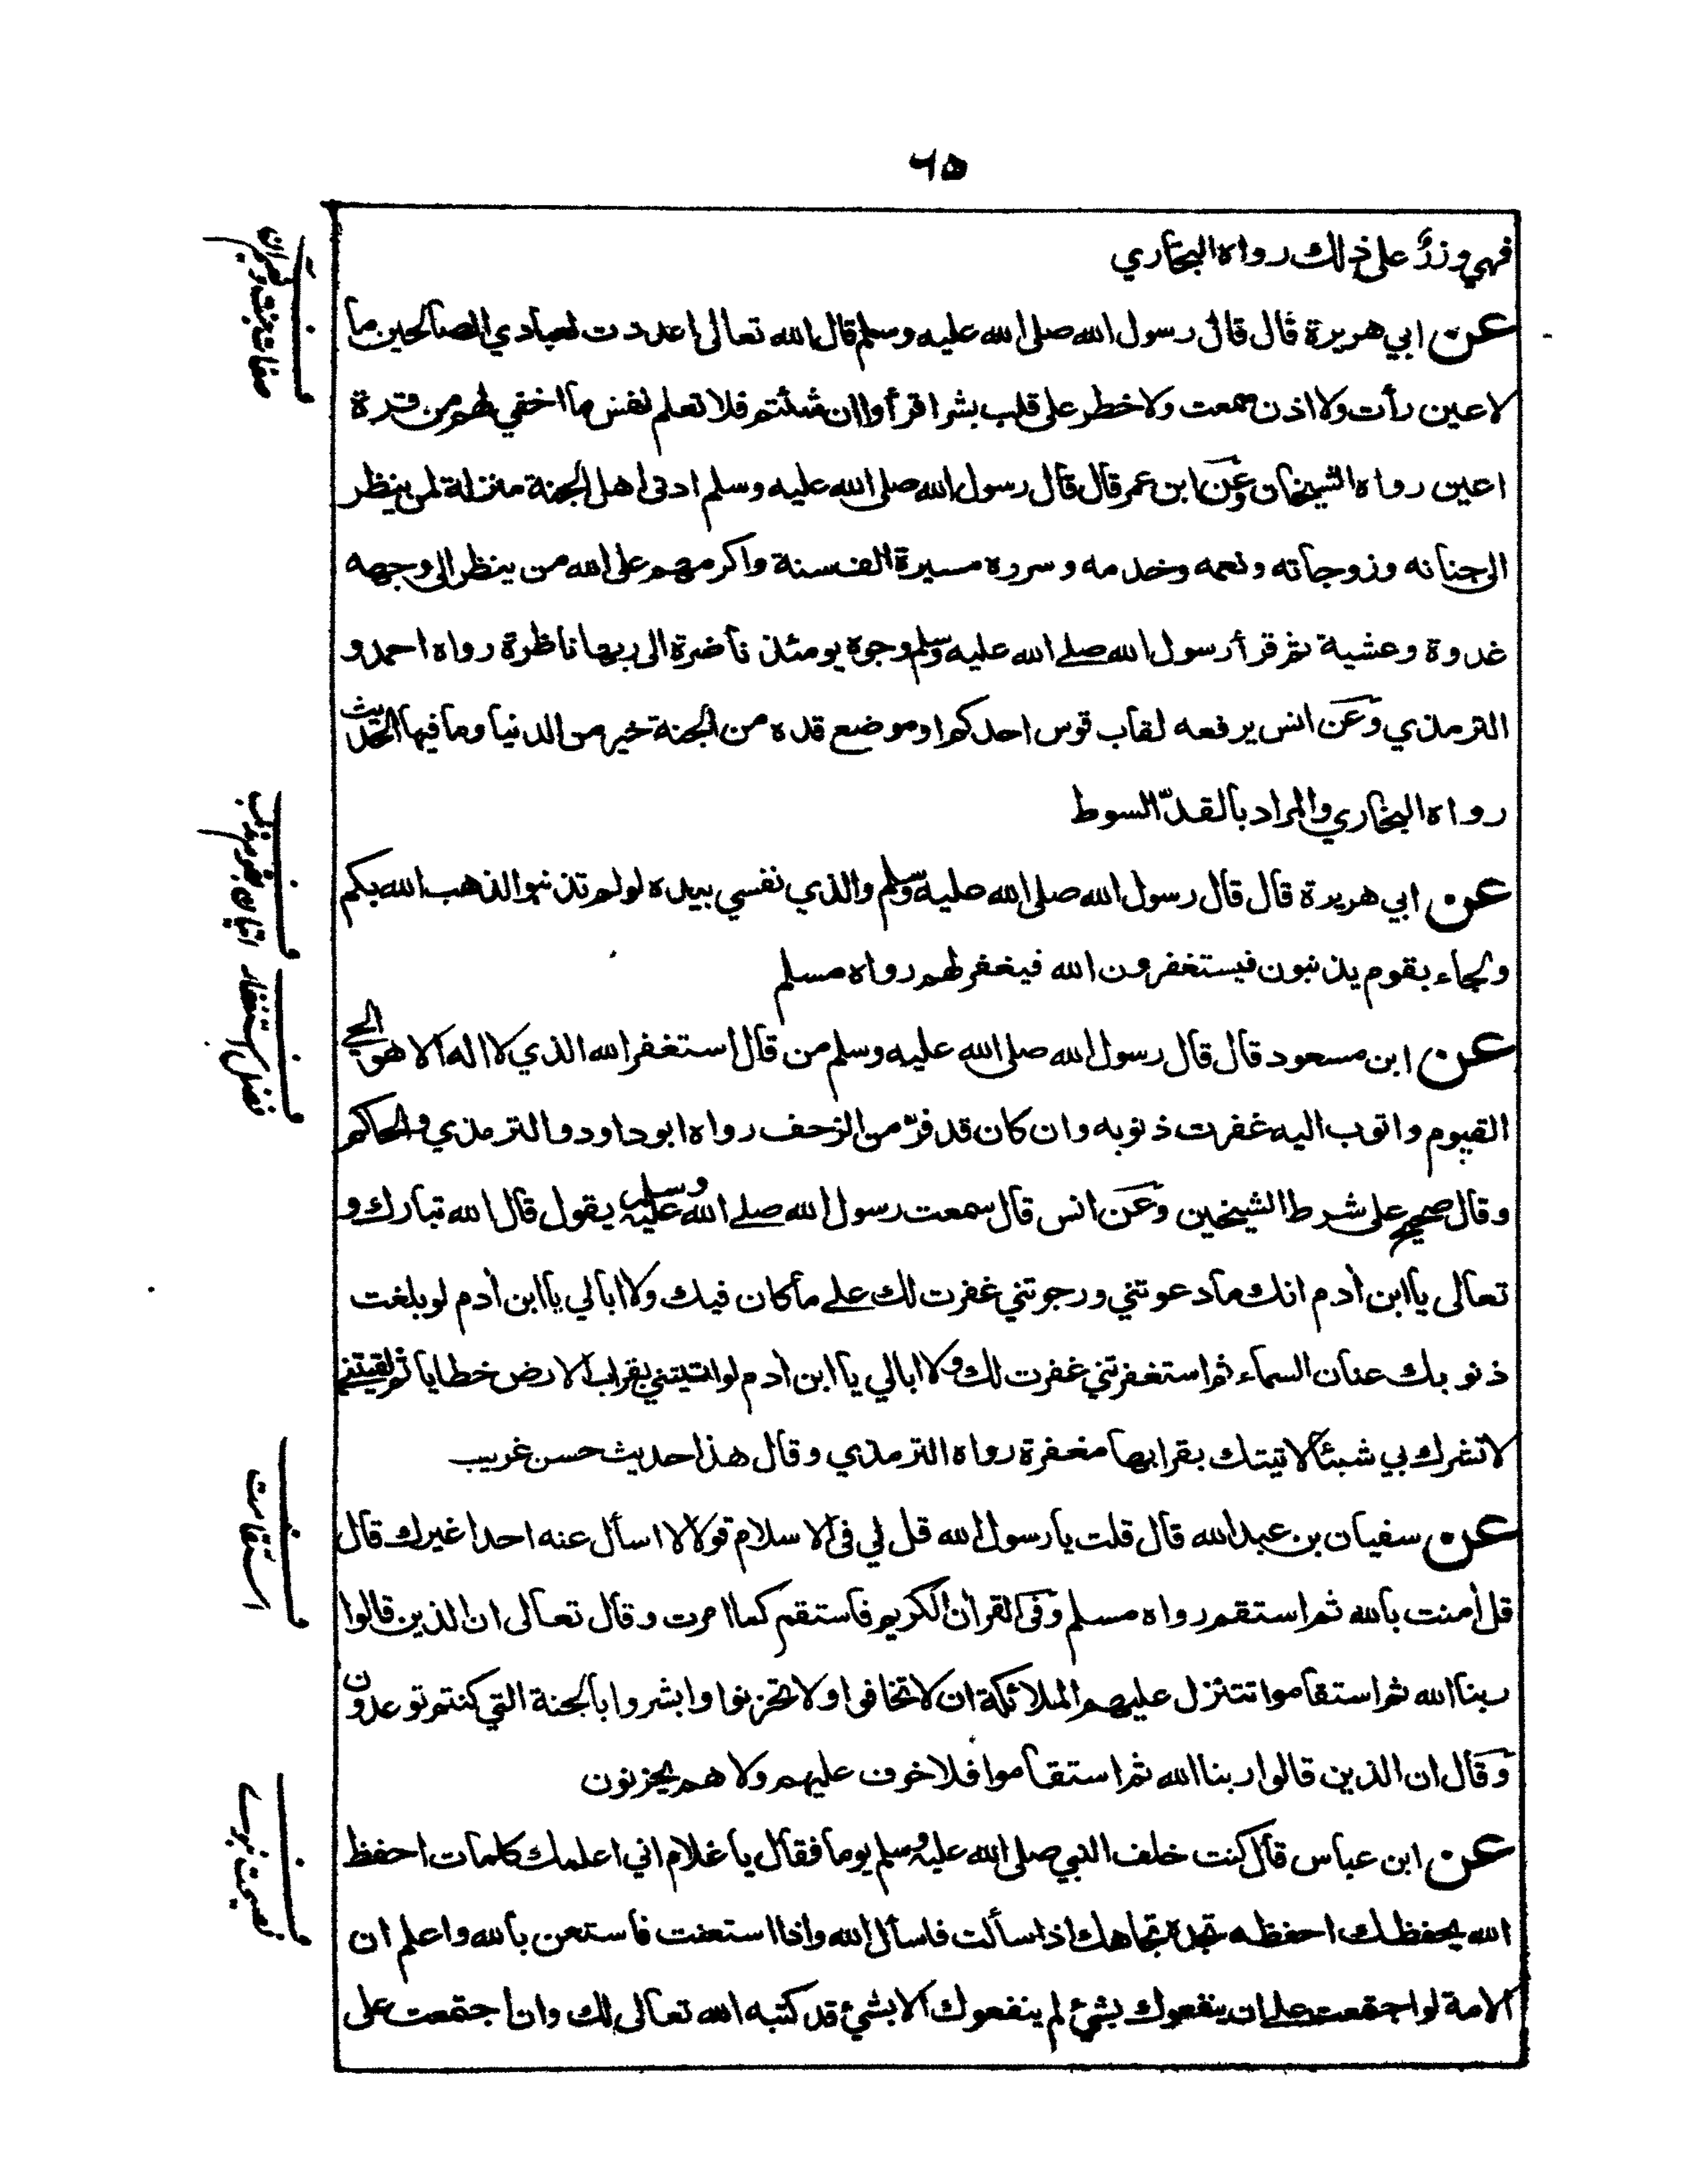 ٦٥
فهي وزر على ذلك رواه البخاري
عن ابي هريرة قال قال رسول الله صلى الله عليه وسلم قال الله تعالى اعددت لعبادي الصالحين ما
لا عين رأت ولا اذن سمعت ولا خطر على قلب بشر اقرأوا ان شئتم فلا تعلم نفس ما اخفي لهم من قرة
اعين رواه الشيخان وعن ابن عمر قال قال رسول الله صلى الله عليه وسلم ادنى اهل الجنة منزلة لمن ينظر
الى جنانه وزوجاته ونعمه وخدمه وسرره مسيرة الف سنة واكرمهم على الله من ينظر الى وجهه
غدوة وعشية ثم قرأ رسول الله صلے الله عليه وسلم وجوه يومئذ ناضرة الى ربها ناظرة رواه احمد و
الترمذي وعن انس يرفعه لقاب قوس احدكم او موضع قده من الجنة خير من الدنيا وما فيها الحديث
رواه البخاري والمراد بالقدّ السوط
عن ابي هريرة قال قال رسول الله صلى الله عليه وسلم والذي نفسي بيده لو لم تذنبوا لذهب الله بكم
ولجاء بقوم يذنبون فيستغفرون الله فيغفر لهم رواه مسلم
عن ابن مسعود قال قال رسول الله صلى الله عليه وسلم من قال استغفر الله الذي لا اله الا هو الحي
القيوم واتوب اليه غفرت ذنوبه وان كان قد فرّ من الزحف رواه ابو داود والترمذي والحاكم
وقال صحيح على شرط الشيخين وعن انس قال سمعت رسول الله صلے الله عليه وسلم يقول قال الله تبارك و
تعالى يا ابن أدم انك ما دعوتني ورجوتني غفرت لك علے ما كان فيك ولا ابالي يا ابن أدم لو بلغت
ذنوبك عنان السماء ثم استغفرتني غفرت لك ولا ابالي يا ابن أدم لو اتيتني بقراب الارض خطايا ثم لقيتني
لا تشرك بي شيئا لاتيتك بقرابها مغفرة رواه الترمذي وقال هذا حديث حسن غريب
عن سفيان بن عبد الله قال قلت يا رسول الله قل لي في الاسلام قولا لا اسأل عنه احدا غيرك قال
قل أمنت بالله ثم استقم رواه مسلم وفي القرأن الكريم فاستقم كما امرت وقال تعالى ان الذين قالوا
ربنا الله ثم استقاموا تتنزل عليهم الملائكة ان لا تخافوا ولا تحزنوا وابشروا بالجنة التي كنتم توعدون
وقال ان الذين قالوا ربنا الله ثم استقاموا فلا خوف عليهم ولا هم يحزنون
عن ابن عباس قال كنت خلف النبي صلى الله عليه وسلم يوما فقال يا غلام اني اعلمك كلمات احفظ
الله يحفظك احفظه تجده تجاهك اذا سألت فاسأل الله واذا استعنت فاستعن بالله واعلم ان
الامة لو اجتمعت علے ان ينفعوك بشيئ لم ينفعوك الا بشيئ قد كتبه الله تعالى لك وان اجتمعت على
فضل استغفار
استقامت
نصيحت نبوے